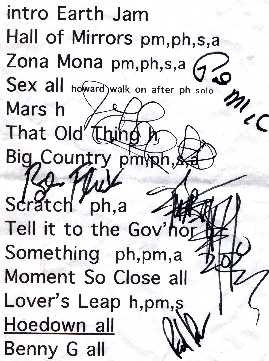 intro Earth Jam
Hall of Mirrors pm,ph,s,a
Zona Mona pm,ph,s,a
Sex all howard walk on after ph solo
Mars h
That Old Thing h
Big Country pm,ph,s,a
Scratch ph,a
Tell it to the Gov'nor
Something ph,pm,a
Moment So Close all
Lover's Leap h,pm,s
Hoedown all
Benny G all